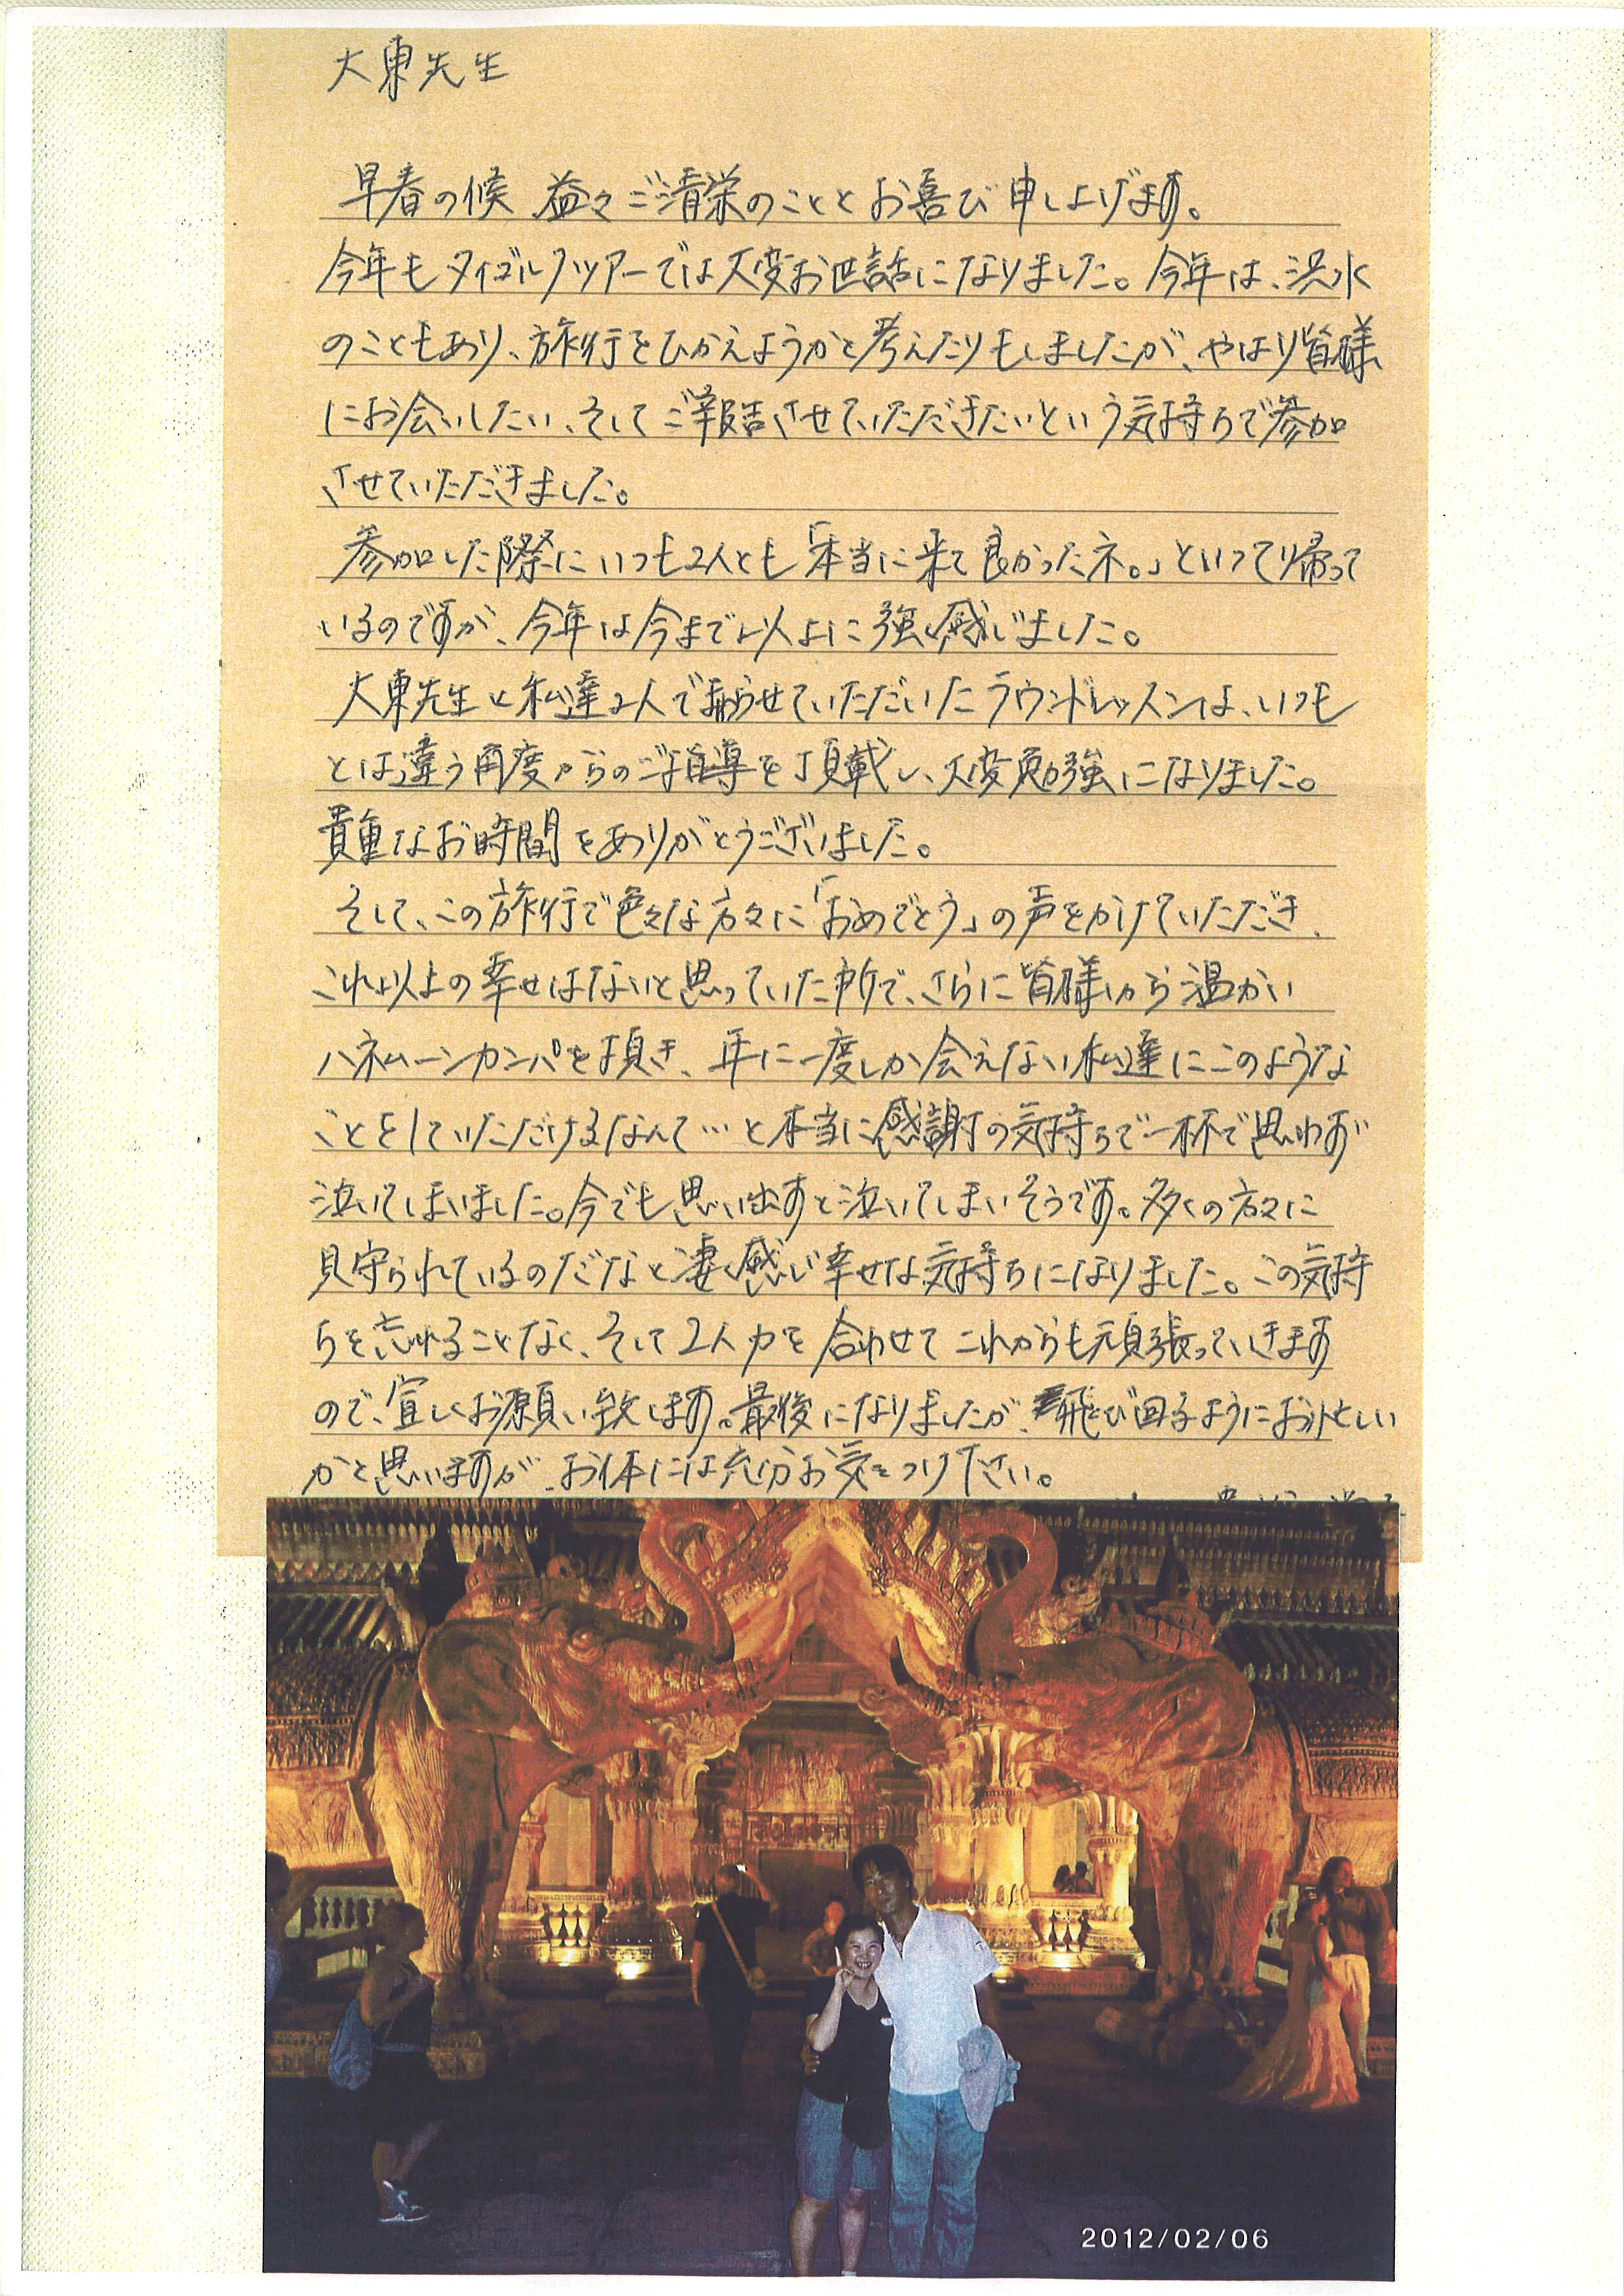 大東先生
早春の候 益々ご清栄のこととお喜び申し上げます。
今年もタイゴルフツアーでは大変お世話になりました。今年は、洪水
のこともあり、旅行をひかえようかと考えたりもしましたが、やはり皆様
にお会いしたい、そしてご報告させていただきたいという気持ちで参加
させていただきました。
参加した際にいつも2人とも「本当に来て良かったネ。」といって帰って
いるのですが、今年は今まで以上に強く感じました。
大東先生と私達2人で廻らせていただいたラウンドレッスンは、いつも
とは違う角度からのご指導を頂戴し、大変勉強になりました。
貴重なお時間をありがとうございました。
そして、この旅行で色々な方々に「おめでとう」の声をかけていただき、
これ以上の幸せはないと思っていた所で、さらに皆様から温かい
ハネムーンカンパを頂き、年に一度しか会えない私達にこのような
ことをしていただけるなんて…と本当に感謝の気持ちで一杯で思わず
泣いてしまいました。今でも思い出すと泣いてしまいそうです。多くの方々に
見守られているのだなと凄く感じ幸せな気持ちになりました。この気持
ちを忘れることなく、そして2人力を合わせてこれからも頑張っていきます
ので、宜しくお願い致します。最後になりましたが、飛び回るようにお忙しい
かと思いますが、お体には充分お気をつけ下さい。
2012/02/06